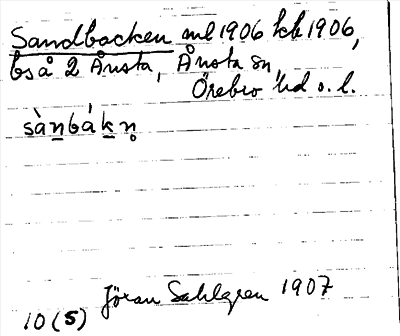 Sandbacken ml 1906 hk 1906,
bs å 2 Ånsta, Ånsta sn,
Örebro hd o. l.
sànbákn̥
Jöran Sahlgren 1907
10 (5)